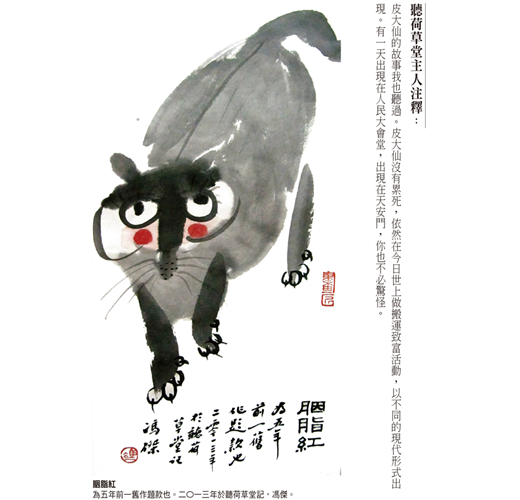 聽荷草堂主人注釋：
皮大仙的故事我也聽過。皮大仙沒有累死，依然在今日世上做搬運致富活動，以不同的現代形式出
現。有一天出現在人民大會堂，出現在天安門，你也不必驚怪。
胭脂紅
為五年
前一舊
作題款也
二〇一三年
於聽荷
草堂記
馮傑
胭脂紅
為五年前一舊作題款也。二〇一三年於聽荷草堂記，馮傑。